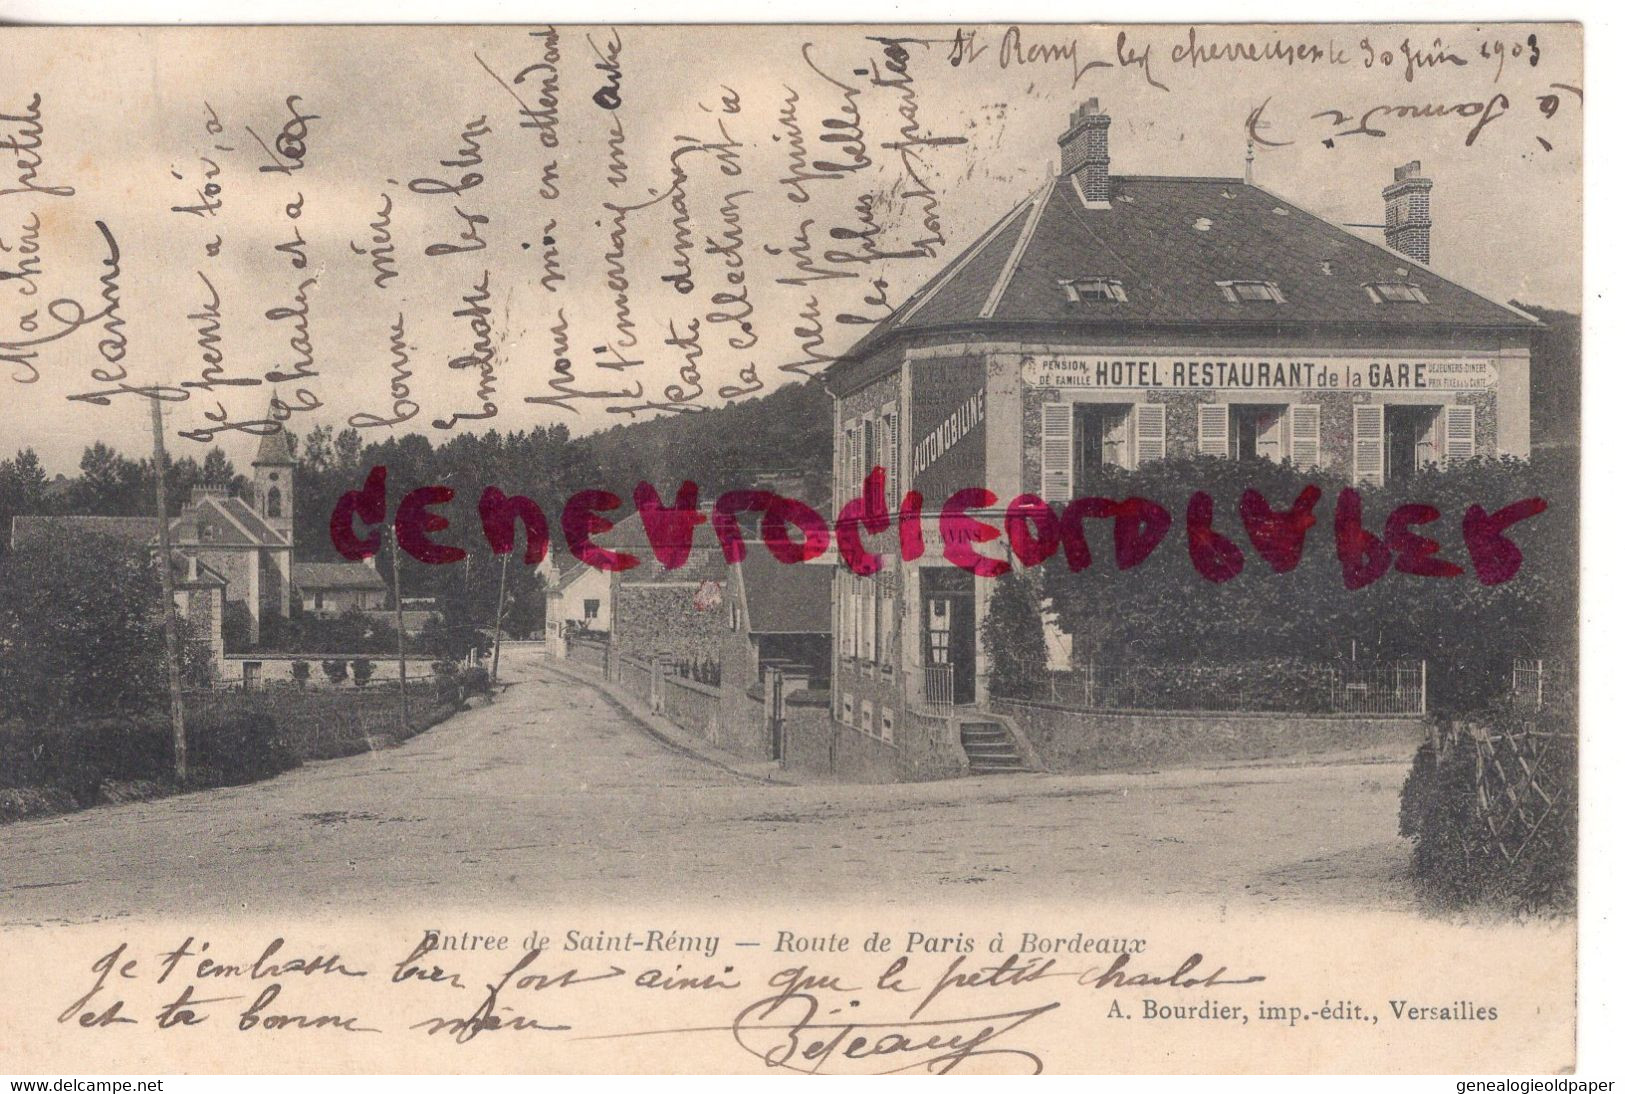 St Remy les chevreuses le 30 Juin 1903
(à Samedi)
Ma chère petite
Jeanne
Je pense a toi, a
Charles et a ta
bonne mère,
Embrasse les bien
pour moi en attendant
Je t'enverrai une autre
carte demain,
la collection est à
peu près épuisée
les plus belles
sont parties
PENSION DE FAMILLE
HOTEL-RESTAURANT de la GARE
DEJEUNERS-DINERS
PRIX FIXE & à la CARTE
AUTOMOBILINE
VINS
GENEALOGIEOLDPAPER
Entree de Saint-Rémy — Route de Paris à Bordeaux
Je t'embrasse bien fort ainsi que le petit charlot
et ta bonne mère
A. Bourdier, imp.-édit., Versailles
www.delcampe.net
genealogieoldpaper